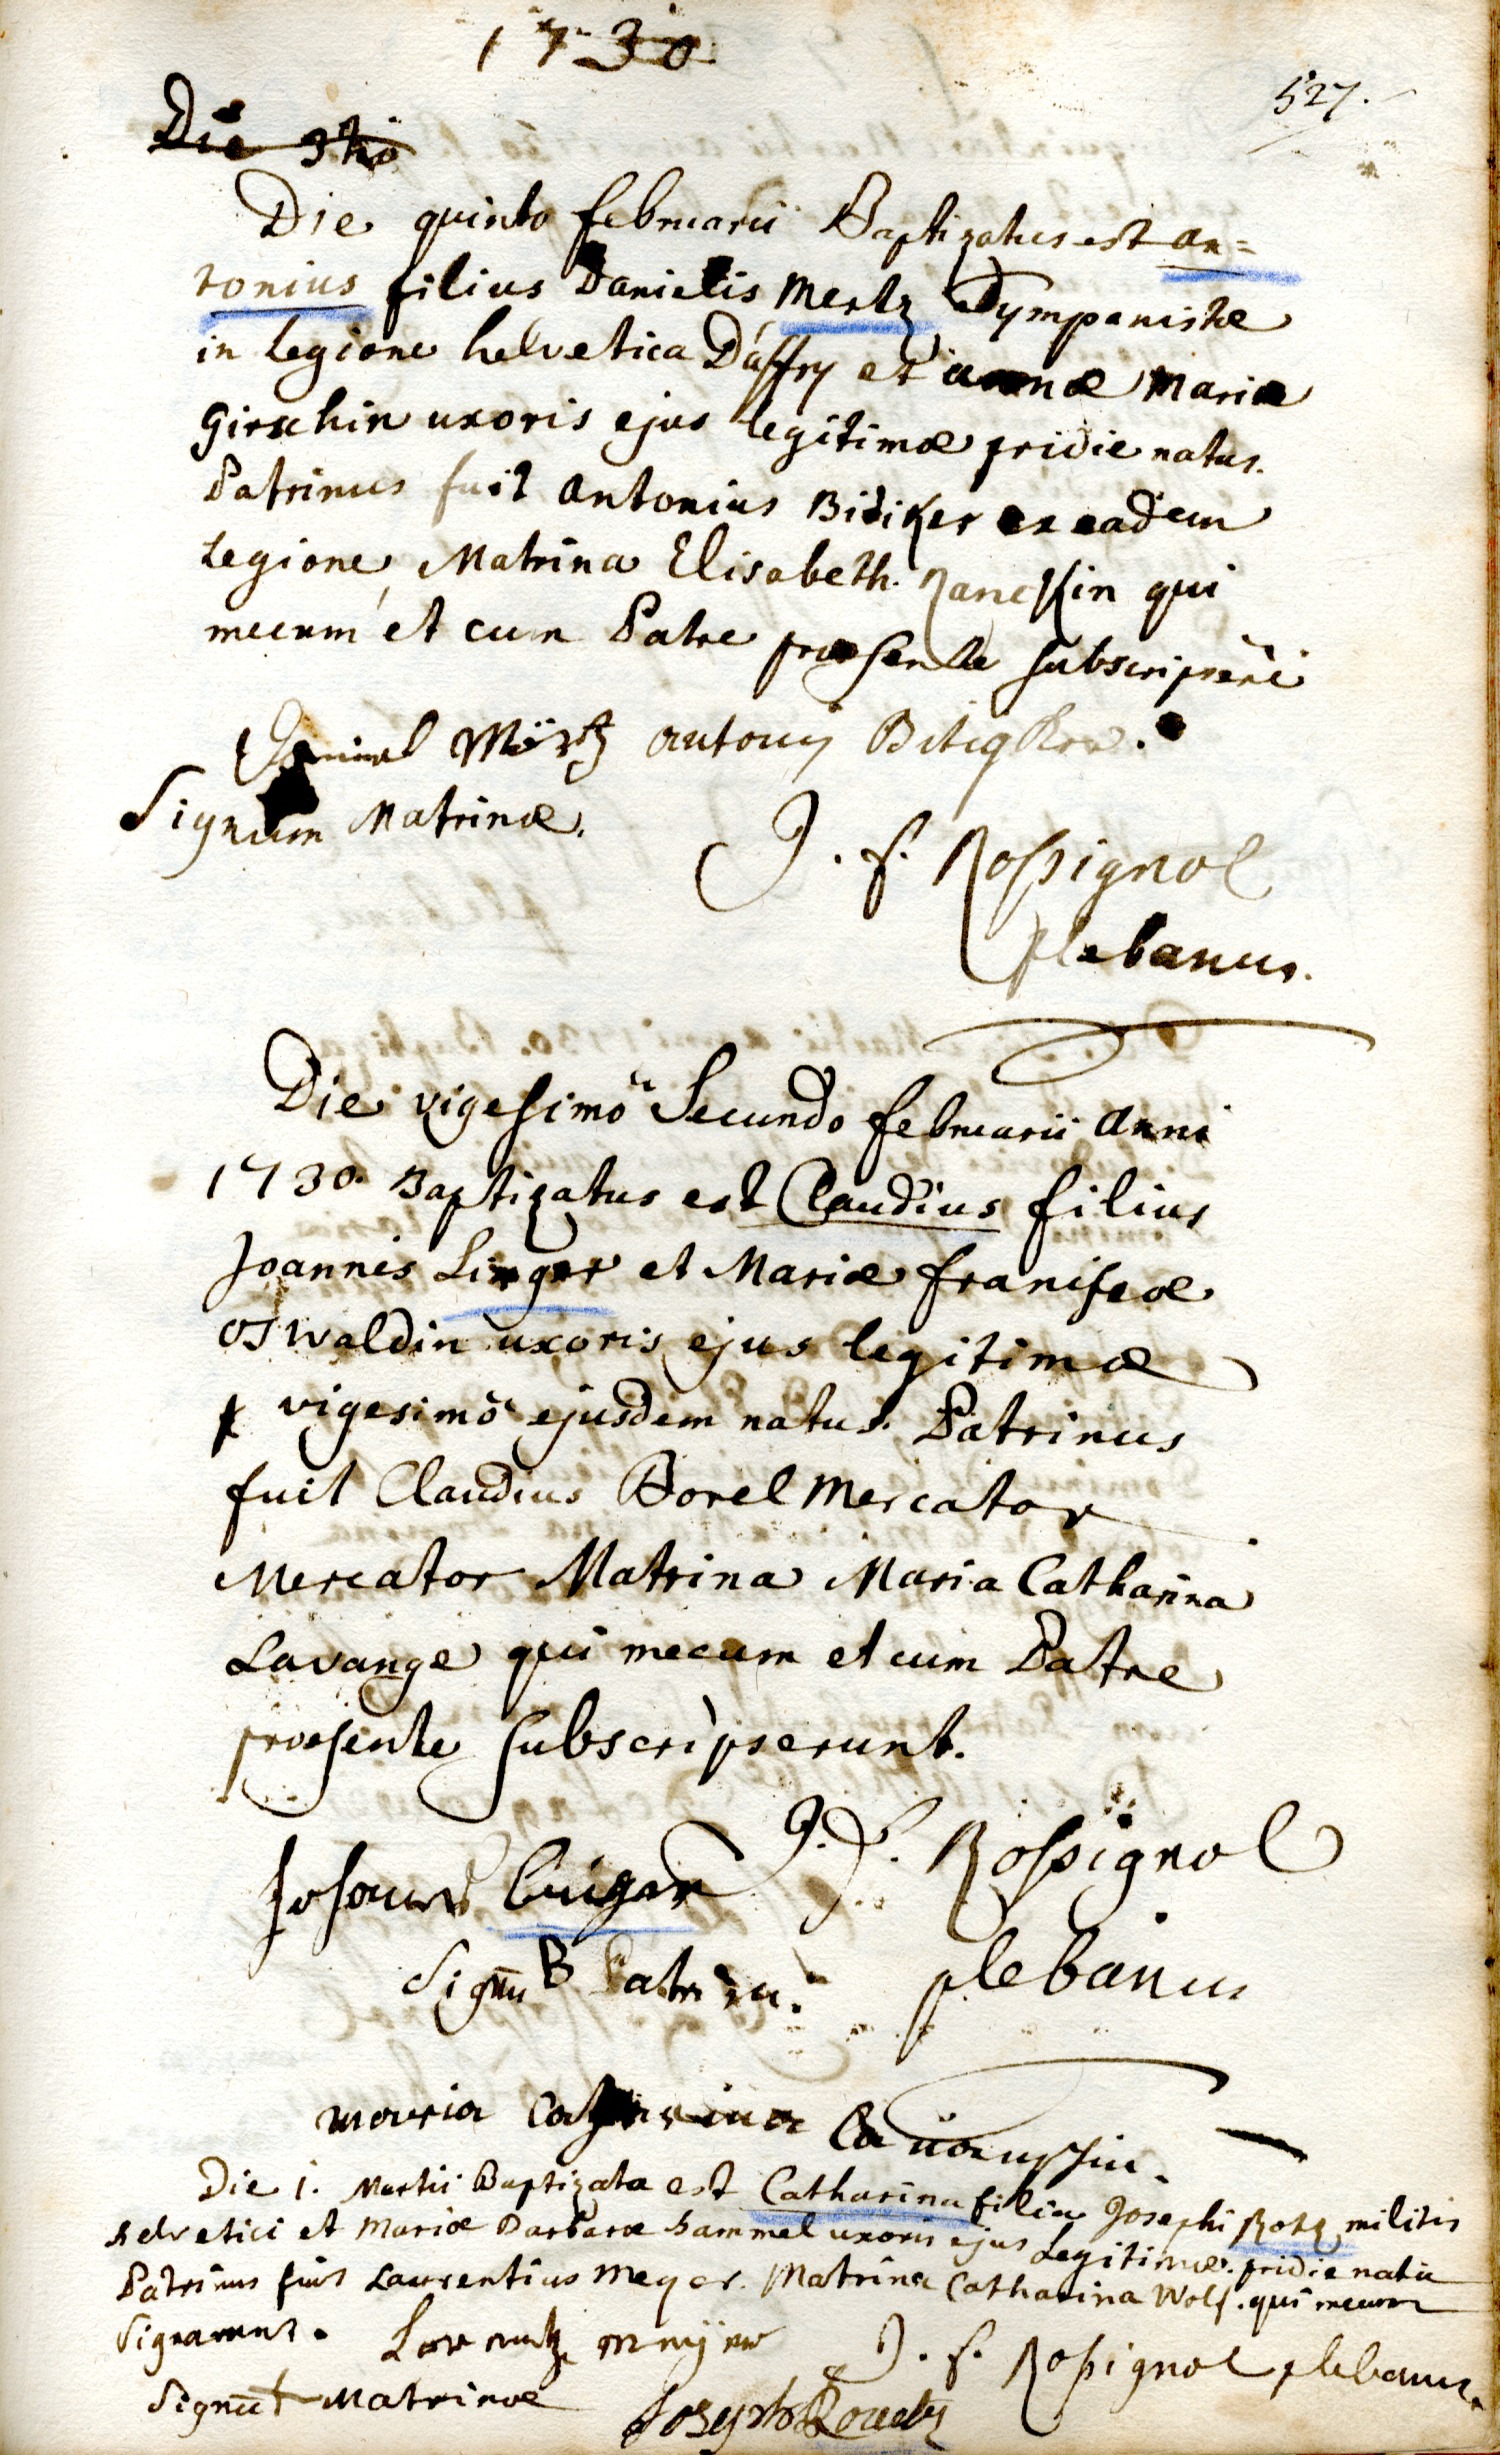 1730
527.
Die 3tio
Die quinto februarii Baptizatus est an=
tonius filius Danielis Mertz Tympanistæ
in legione helvetica Dáffry et annæ Mariæ
Girschin uxoris ejus legitimæ pridie natus.
Patrinus fuit Antonius Bitiker ex eadem
legione, Matrina Elisabeth. Ranckin qui
mecum et cum Patre præsente subscripsere
Daniel Mërtz antoni Bitigker.
Signum Matrinæ.
J. f. Rossignol
plebanus.
Die vigesimo Secundo februarii anni
1730. Baptizatus est Claudius filius
Joannis Linger et Mariæ franciscæ
oswaldin uxoris ejus legitimæ
vigesimo ejusdem natus. Patrinus
fuit Claudius Borel Mercator
Mercator Matrina Maria Catharina
Lavange qui mecum et cum Patre
præsente subscripserunt.
J. f. Rossignol
plebanus
Johannes
Signu B Patrini.
maria Catharina
Die 1. Martii Baptizata est Catharina filia Josephi Rotz militis
helvetici et Mariæ Barbaræ Sammel uxoris ejus Legitimæ. pridie nata
Patrinus fuit Laurentius Meyer. Matrina Catharina Wolf. qui mecum
Signarunt. Lorentz
J. f. Rossignol plebanus.
Signu + Matrinæ
Joseph